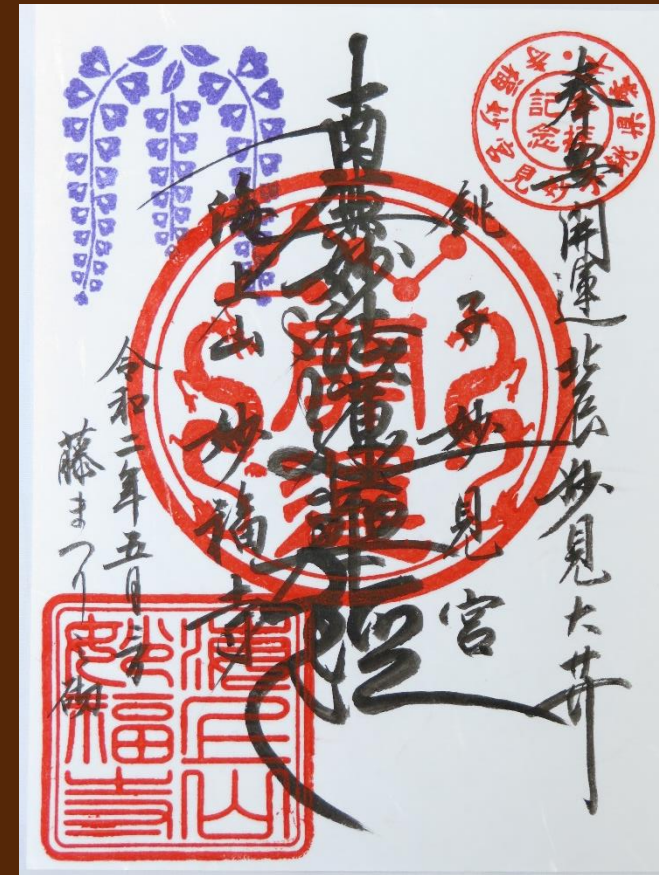 奉安 開運北辰妙見大菩薩
銚子妙見宮
南無妙法蓮華経
海上山妙福寺
令和二年五月
藤まつり砌
記念
開運
海上山
妙福寺